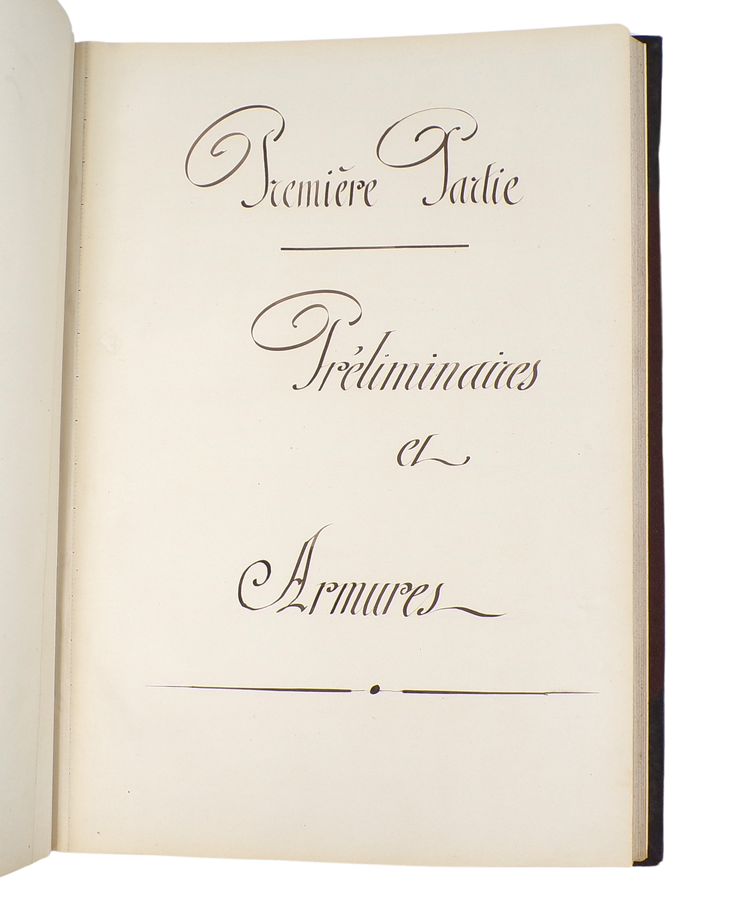 Première Partie
Préliminaires
et
Armures